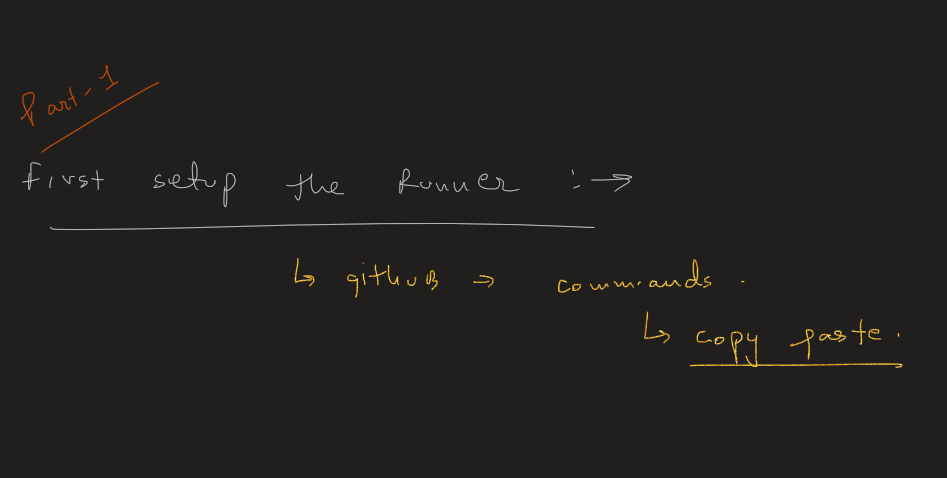 Part-1
First setup the Runner :→
↳ github → commands.
↳ copy paste.